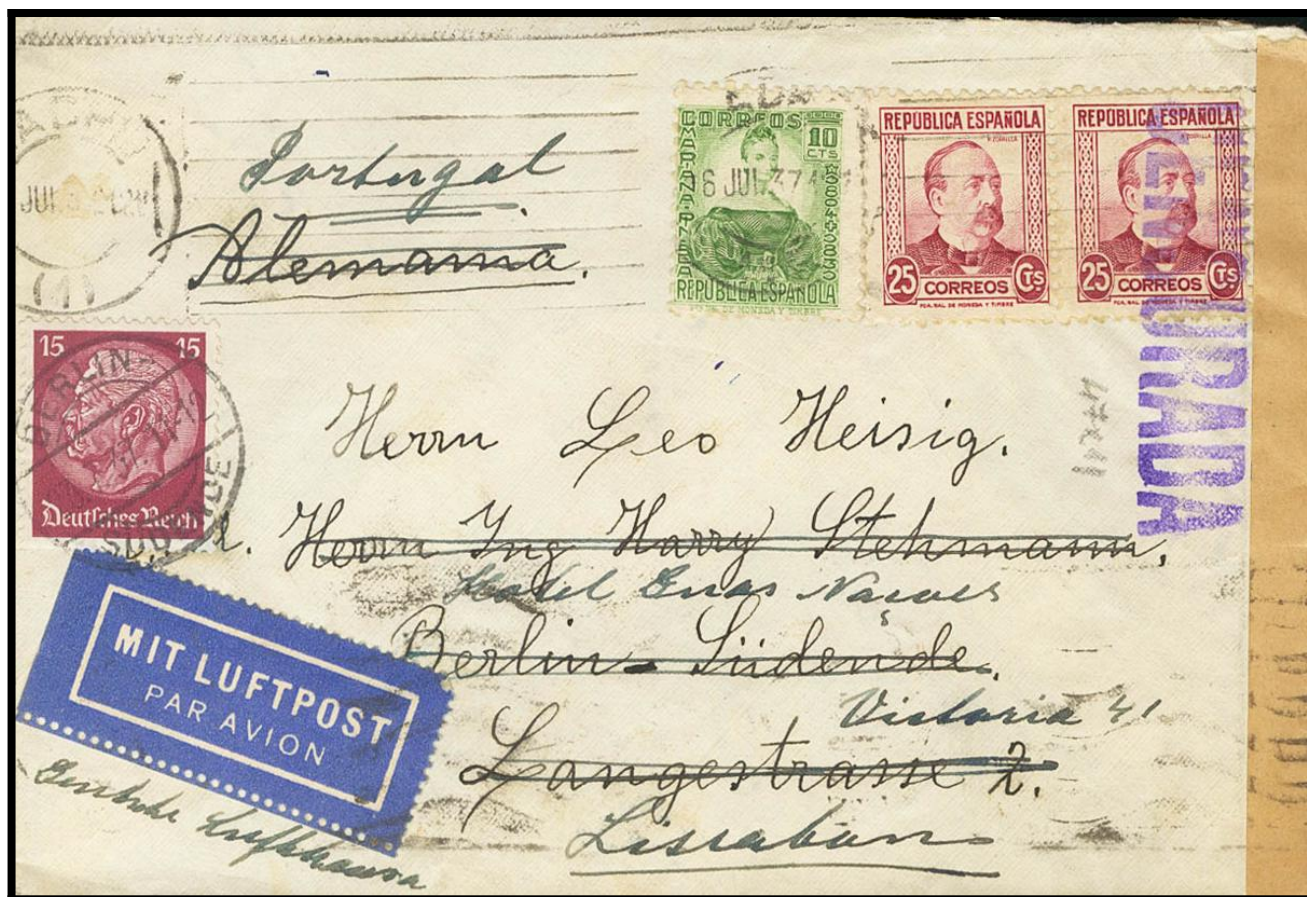 Portugal
Alemania.
CORREOS
10
CTS
MARIANA PINEDA
REPUBLICA ESPAÑOLA
16 JUL 37
REPUBLICA ESPAÑOLA
25 CORREOS CTS
REPUBLICA ESPAÑOLA
25 CORREOS CTS
CENSURADA
15 15
BERLIN
SÜDENDE
Deutsches Reich
Herrn Leo Heisig.
Herrn Ing Harry Stehmann,
Hotel
Berlin-Südende.
Victoria 41
Langestrasse 2.
Lissabon
MIT LUFTPOST
PAR AVION
Deutsche Lufthansa